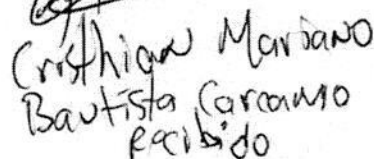 Cristhian Mariano
Bautista Carcamo
Recibido